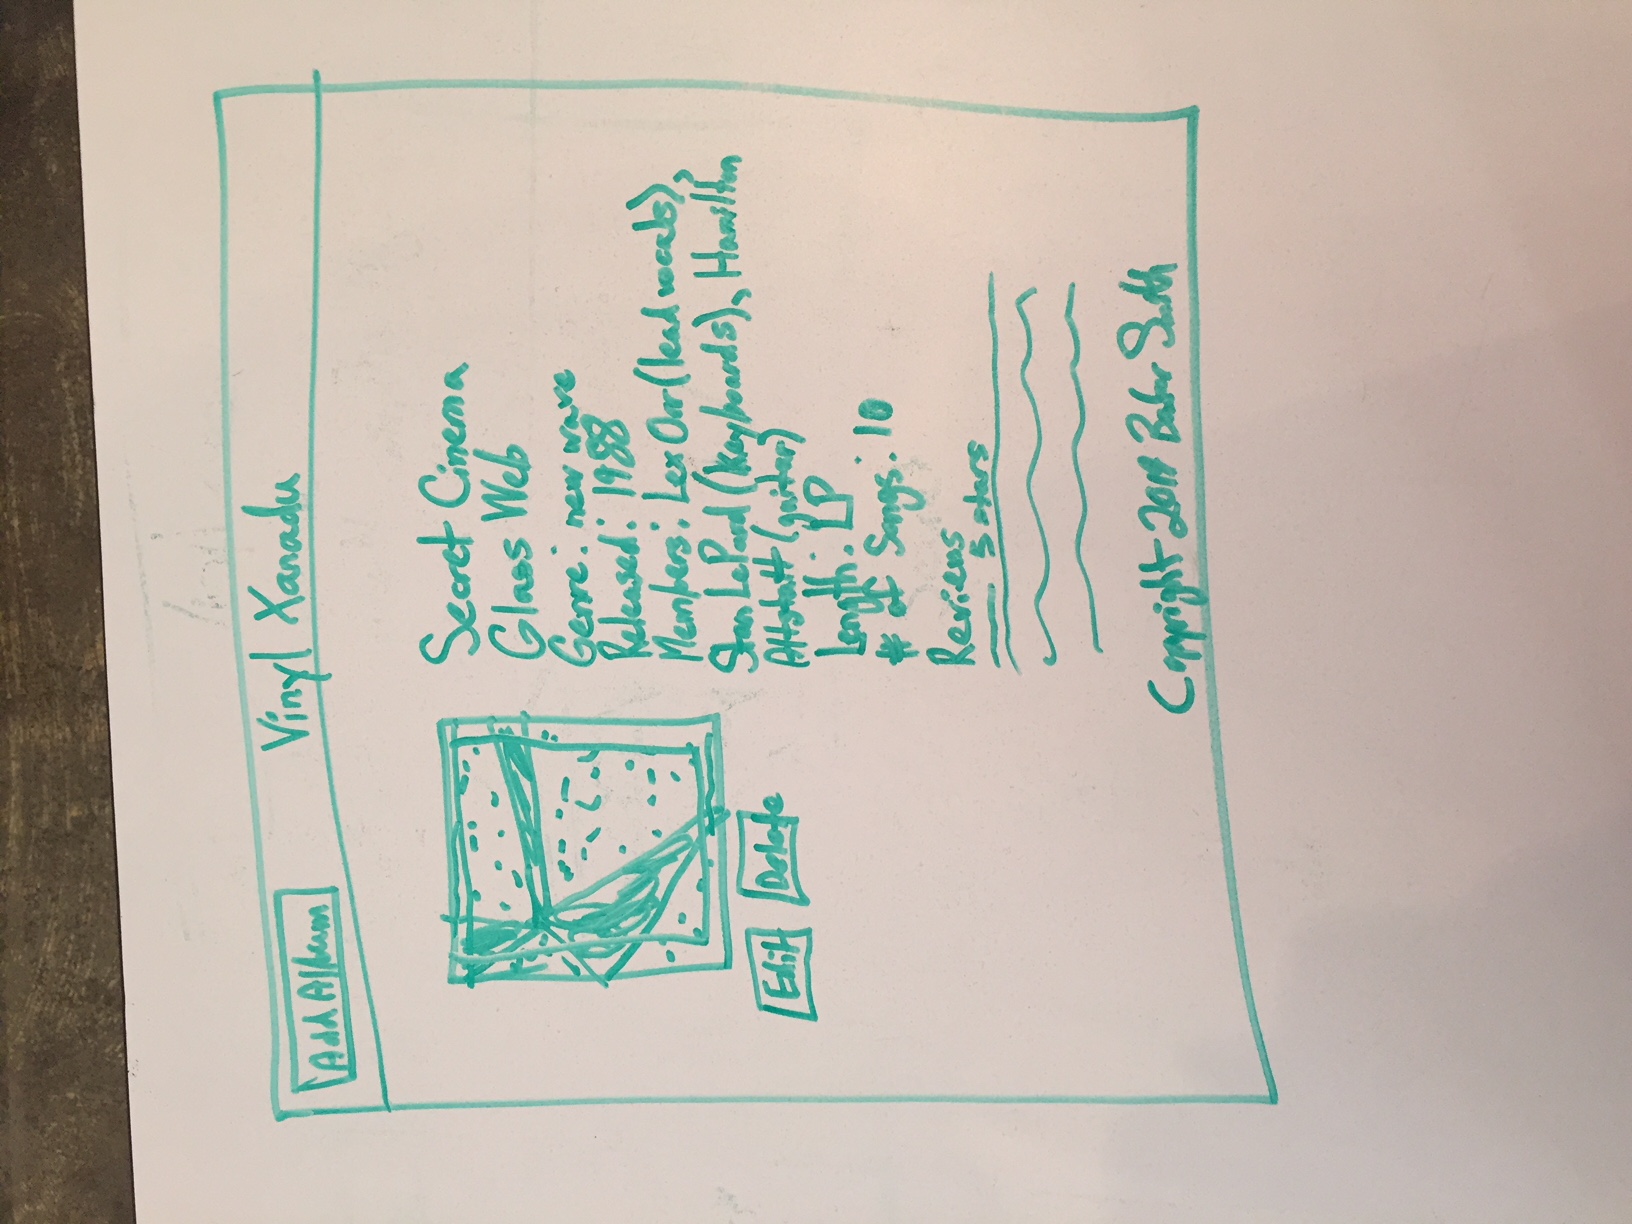 Vinyl Xanadu
Add Album
Secret Cinema
Glass Web
Genre: new wave
Released: 1988
Members: Lex Orr (lead vocals),
Stan LePard (keyboards), Hamilton
Altstatt (guitar)
Length: LP
# of Songs: 10
Edit
Delete
Reviews
5 stars
Copyright 2019 Smith